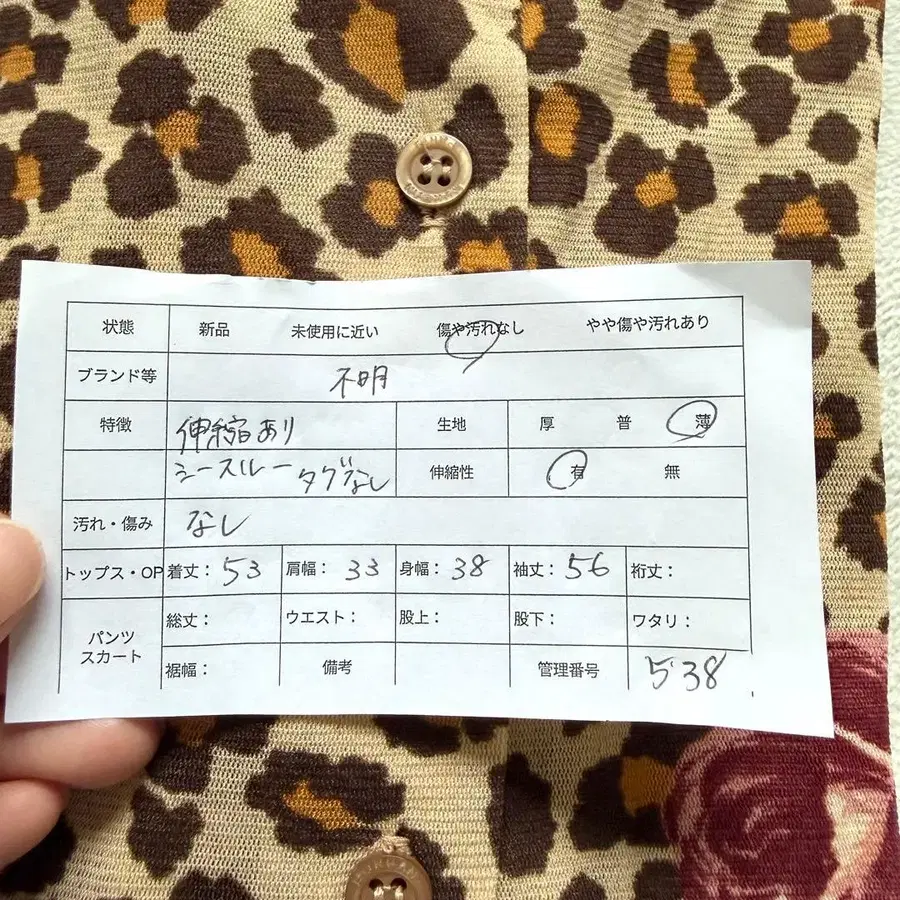 状態 新品 未使用に近い 傷や汚れなし やや傷や汚れあり
ブランド等 不明
特徴 伸縮あり 生地 厚 普 薄
シースルー タグなし 伸縮性 有 無
汚れ・傷み なし
トップス・OP 着丈: 53 肩幅: 33 身幅: 38 袖丈: 56 裄丈:
パンツ スカート 総丈: ウエスト: 股上: 股下: ワタリ:
裾幅: 備考 管理番号 538